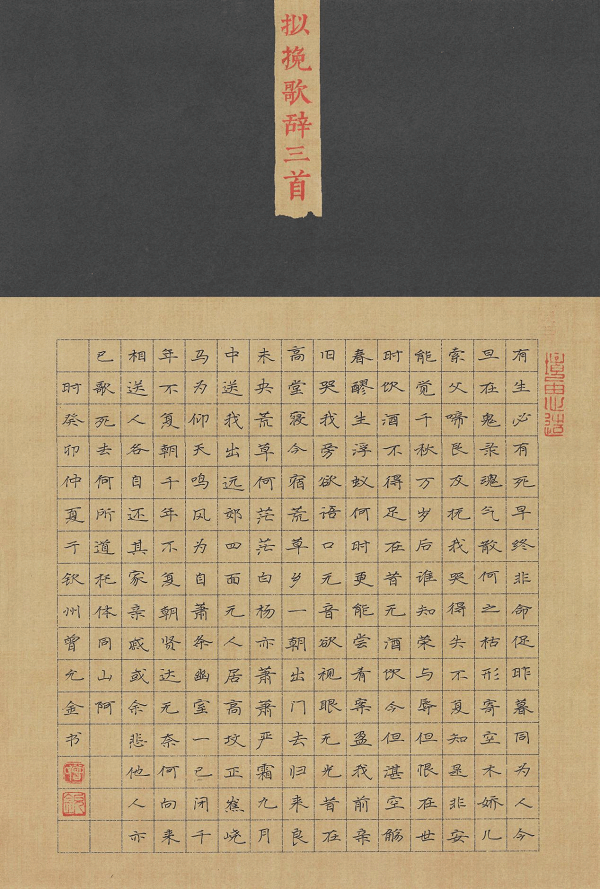 拟挽歌辞三首
有生必有死早终非命促昨暮同为人今
旦在鬼录魂气散何之枯形寄空木娇儿
索父啼良友抚我哭得失不复知是非安
能觉千秋万岁后谁知荣与辱但恨在世
时饮酒不得足在昔无酒饮今但湛空觞
春醪生浮蚁何时更能尝肴案盈我前亲
旧哭我旁欲语口无音欲视眼无光昔在
高堂寝今宿荒草乡一朝出门去归来良
未央荒草何茫茫白杨亦萧萧严霜九月
中送我出远郊四面无人居高坟正嶣峣
马为仰天鸣风为自萧条幽室一已闭千
年不复朝千年不复朝贤达无奈何向来
相送人各自还其家亲戚或余悲他人亦
已歌死去何所道托体同山阿
时癸卯仲夏于钦州曾允金书